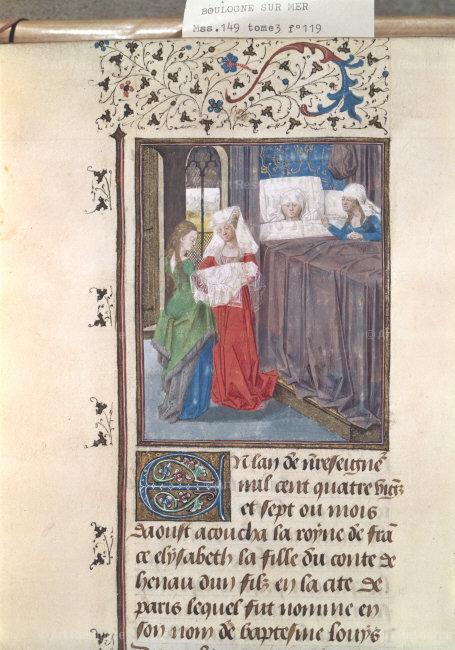 BOULOGNE SUR MER
Mss.149 tome3 f°119
En lan de nr̄e seigne
mil cent quatre vins
et sept ou mois
daoust acoucha la royne de frā
ce elysabeth la fille du conte de
henau dun filz en la cite de
paris lequel fut nomme en
son nom de baptesme louys